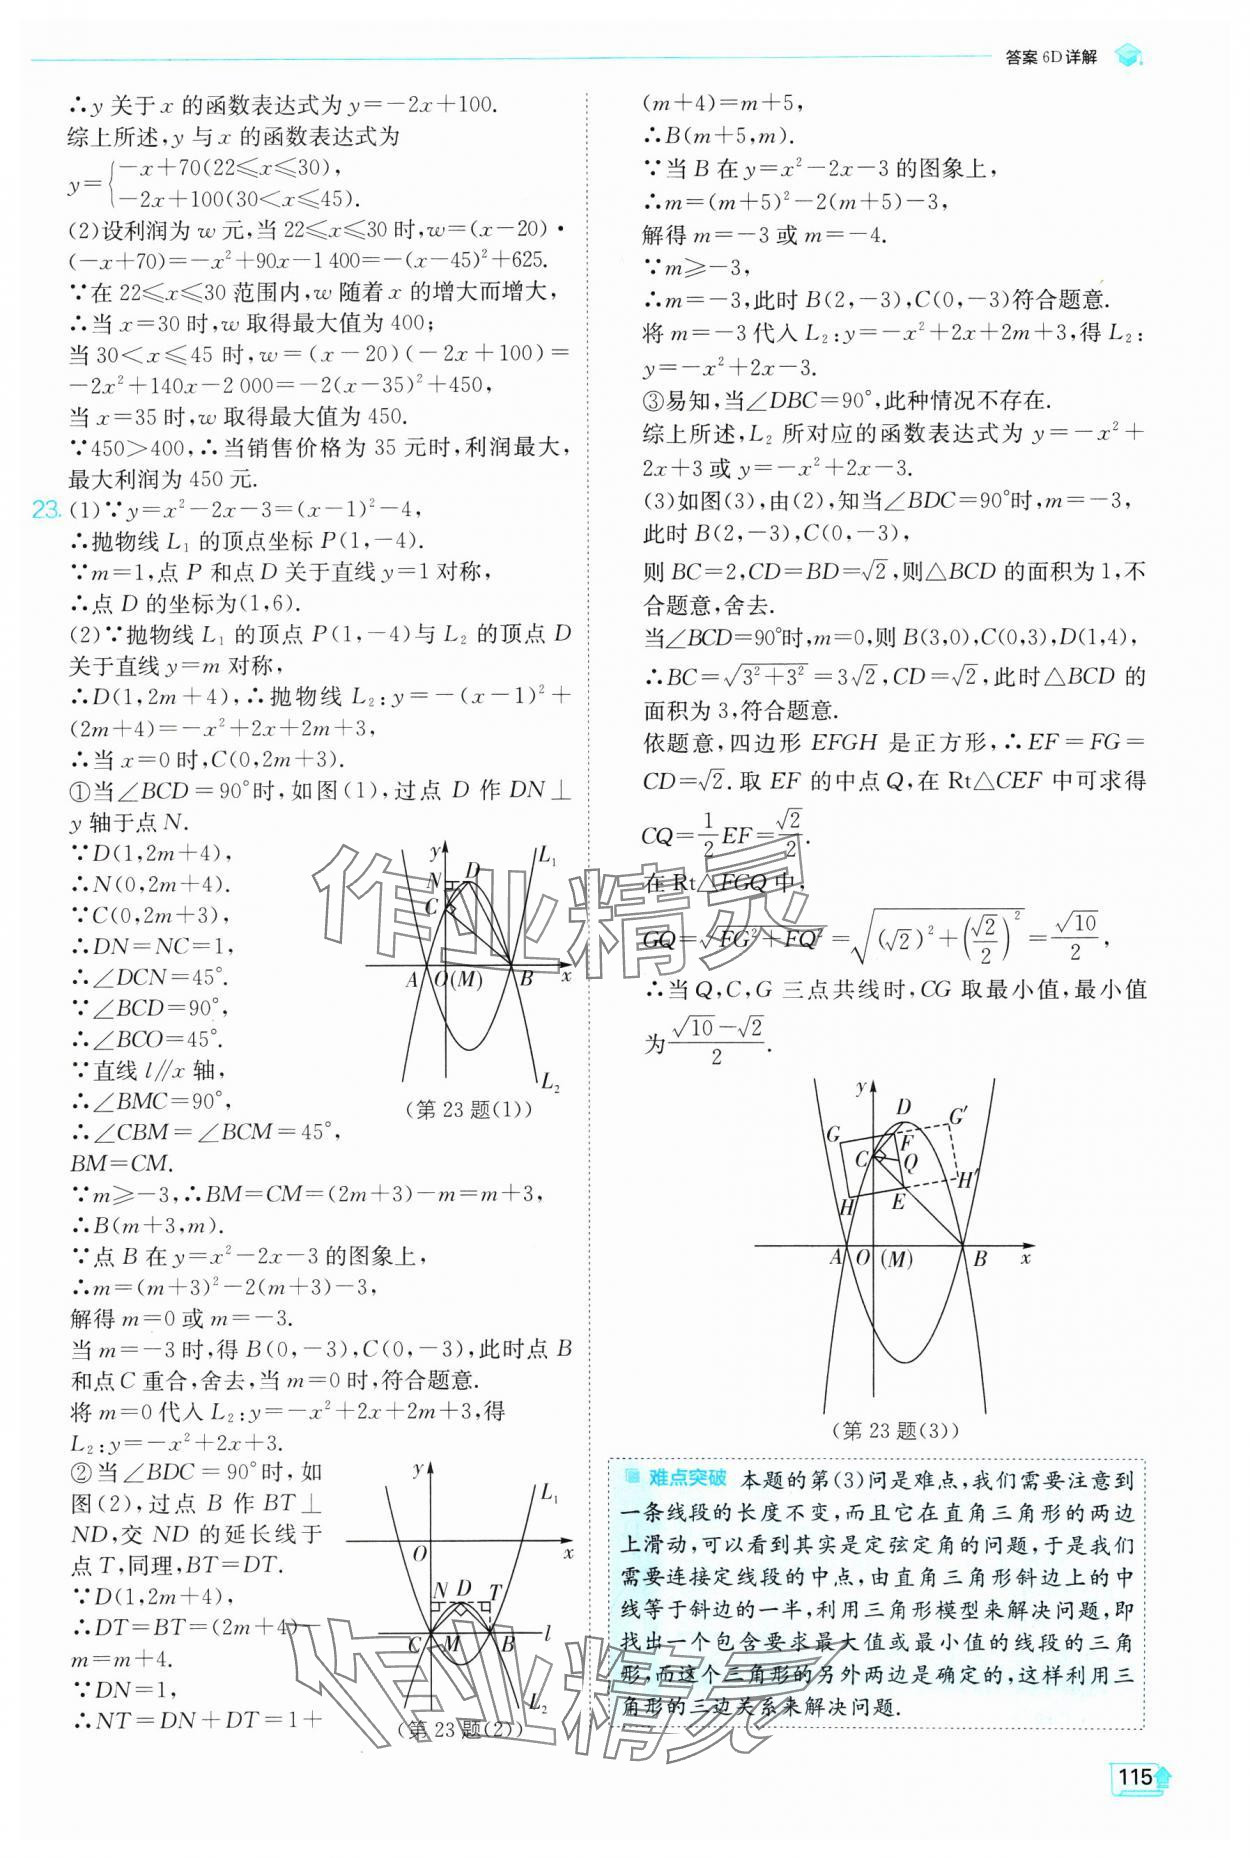 答案 6D 详解
∴y 关于 x 的函数表达式为 y=-2x+100.
综上所述,y 与 x 的函数表达式为
y={-x+70(22≤x≤30),
-2x+100(30<x≤45).
(2)设利润为 w 元,当 22≤x≤30 时,w=(x-20)·
(-x+70)=-x²+90x-1 400=-(x-45)²+625.
∵在 22≤x≤30 范围内,w 随着 x 的增大而增大,
∴当 x=30 时,w 取得最大值为 400;
当 30<x≤45 时,w=(x-20)(-2x+100)=
-2x²+140x-2 000=-2(x-35)²+450,
当 x=35 时,w 取得最大值为 450.
∵450>400,∴当销售价格为 35 元时,利润最大,
最大利润为 450 元.
23. (1)∵y=x²-2x-3=(x-1)²-4,
∴抛物线 L₁ 的顶点坐标 P(1,-4).
∵m=1,点 P 和点 D 关于直线 y=1 对称,
∴点 D 的坐标为(1,6).
(2)∵抛物线 L₁ 的顶点 P(1,-4)与 L₂ 的顶点 D
关于直线 y=m 对称,
∴D(1,2m+4),∴抛物线 L₂:y=-(x-1)²+
(2m+4)=-x²+2x+2m+3,
∴当 x=0 时,C(0,2m+3).
①当∠BCD=90°时,如图(1),过点 D 作 DN⊥
y 轴于点 N.
∵D(1,2m+4),
∴N(0,2m+4).
∵C(0,2m+3),
∴DN=NC=1,
∴∠DCN=45°.
∵∠BCD=90°,
∴∠BCO=45°.
∵直线 l∥x 轴,
∴∠BMC=90°,
∴∠CBM=∠BCM=45°,
BM=CM.
y L₁ N D C A O(M) B x L₂
(第 23 题(1))
∵m≥-3,∴BM=CM=(2m+3)-m=m+3,
∴B(m+3,m).
∵点 B 在 y=x²-2x-3 的图象上,
∴m=(m+3)²-2(m+3)-3,
解得 m=0 或 m=-3.
当 m=-3 时,得 B(0,-3),C(0,-3),此时点 B
和点 C 重合,舍去,当 m=0 时,符合题意.
将 m=0 代入 L₂:y=-x²+2x+2m+3,得
L₂:y=-x²+2x+3.
②当∠BDC=90°时,如
图(2),过点 B 作 BT⊥
ND,交 ND 的延长线于
点 T,同理,BT=DT.
∵D(1,2m+4),
∴DT=BT=(2m+4)-
m=m+4.
∵DN=1,
∴NT=DN+DT=1+
y L₁ O x N D T C M B l L₂
(第 23 题(2))
(m+4)=m+5,
∴B(m+5,m).
∵当 B 在 y=x²-2x-3 的图象上,
∴m=(m+5)²-2(m+5)-3,
解得 m=-3 或 m=-4.
∵m≥-3,
∴m=-3,此时 B(2,-3),C(0,-3)符合题意.
将 m=-3 代入 L₂:y=-x²+2x+2m+3,得 L₂:
y=-x²+2x-3.
③易知,当∠DBC=90°,此种情况不存在.
综上所述,L₂ 所对应的函数表达式为 y=-x²+
2x+3 或 y=-x²+2x-3.
(3)如图(3),由(2),知当∠BDC=90°时,m=-3,
此时 B(2,-3),C(0,-3),
则 BC=2,CD=BD=√2,则△BCD 的面积为 1,不
合题意,舍去.
当∠BCD=90°时,m=0,则 B(3,0),C(0,3),D(1,4),
∴BC=√(3²+3²)=3√2,CD=√2,此时△BCD 的
面积为 3,符合题意.
依题意,四边形 EFGH 是正方形,∴EF=FG=
CD=√2.取 EF 的中点 Q,在 Rt△CEF 中可求得
CQ=1/2 EF=√2/2.
在 Rt△FGQ 中,
GQ=√(FG²+FQ²)=√((√2)²+(√2/2)²)=√10/2,
∴当 Q,C,G 三点共线时,CG 取最小值,最小值
为(√10-√2)/2.
y D G′ G F C Q H E H′ A O (M) B x
(第 23 题(3))
难点突破 本题的第(3)问是难点,我们需要注意到
一条线段的长度不变,而且它在直角三角形的两边
上滑动,可以看到其实是定弦定角的问题,于是我们
需要连接定线段的中点,由直角三角形斜边上的中
线等于斜边的一半,利用三角形模型来解决问题,即
找出一个包含要求最大值或最小值的线段的三角
形,而这个三角形的另外两边是确定的,这样利用三
角形的三边关系来解决问题.
作业精灵
作业精灵
115